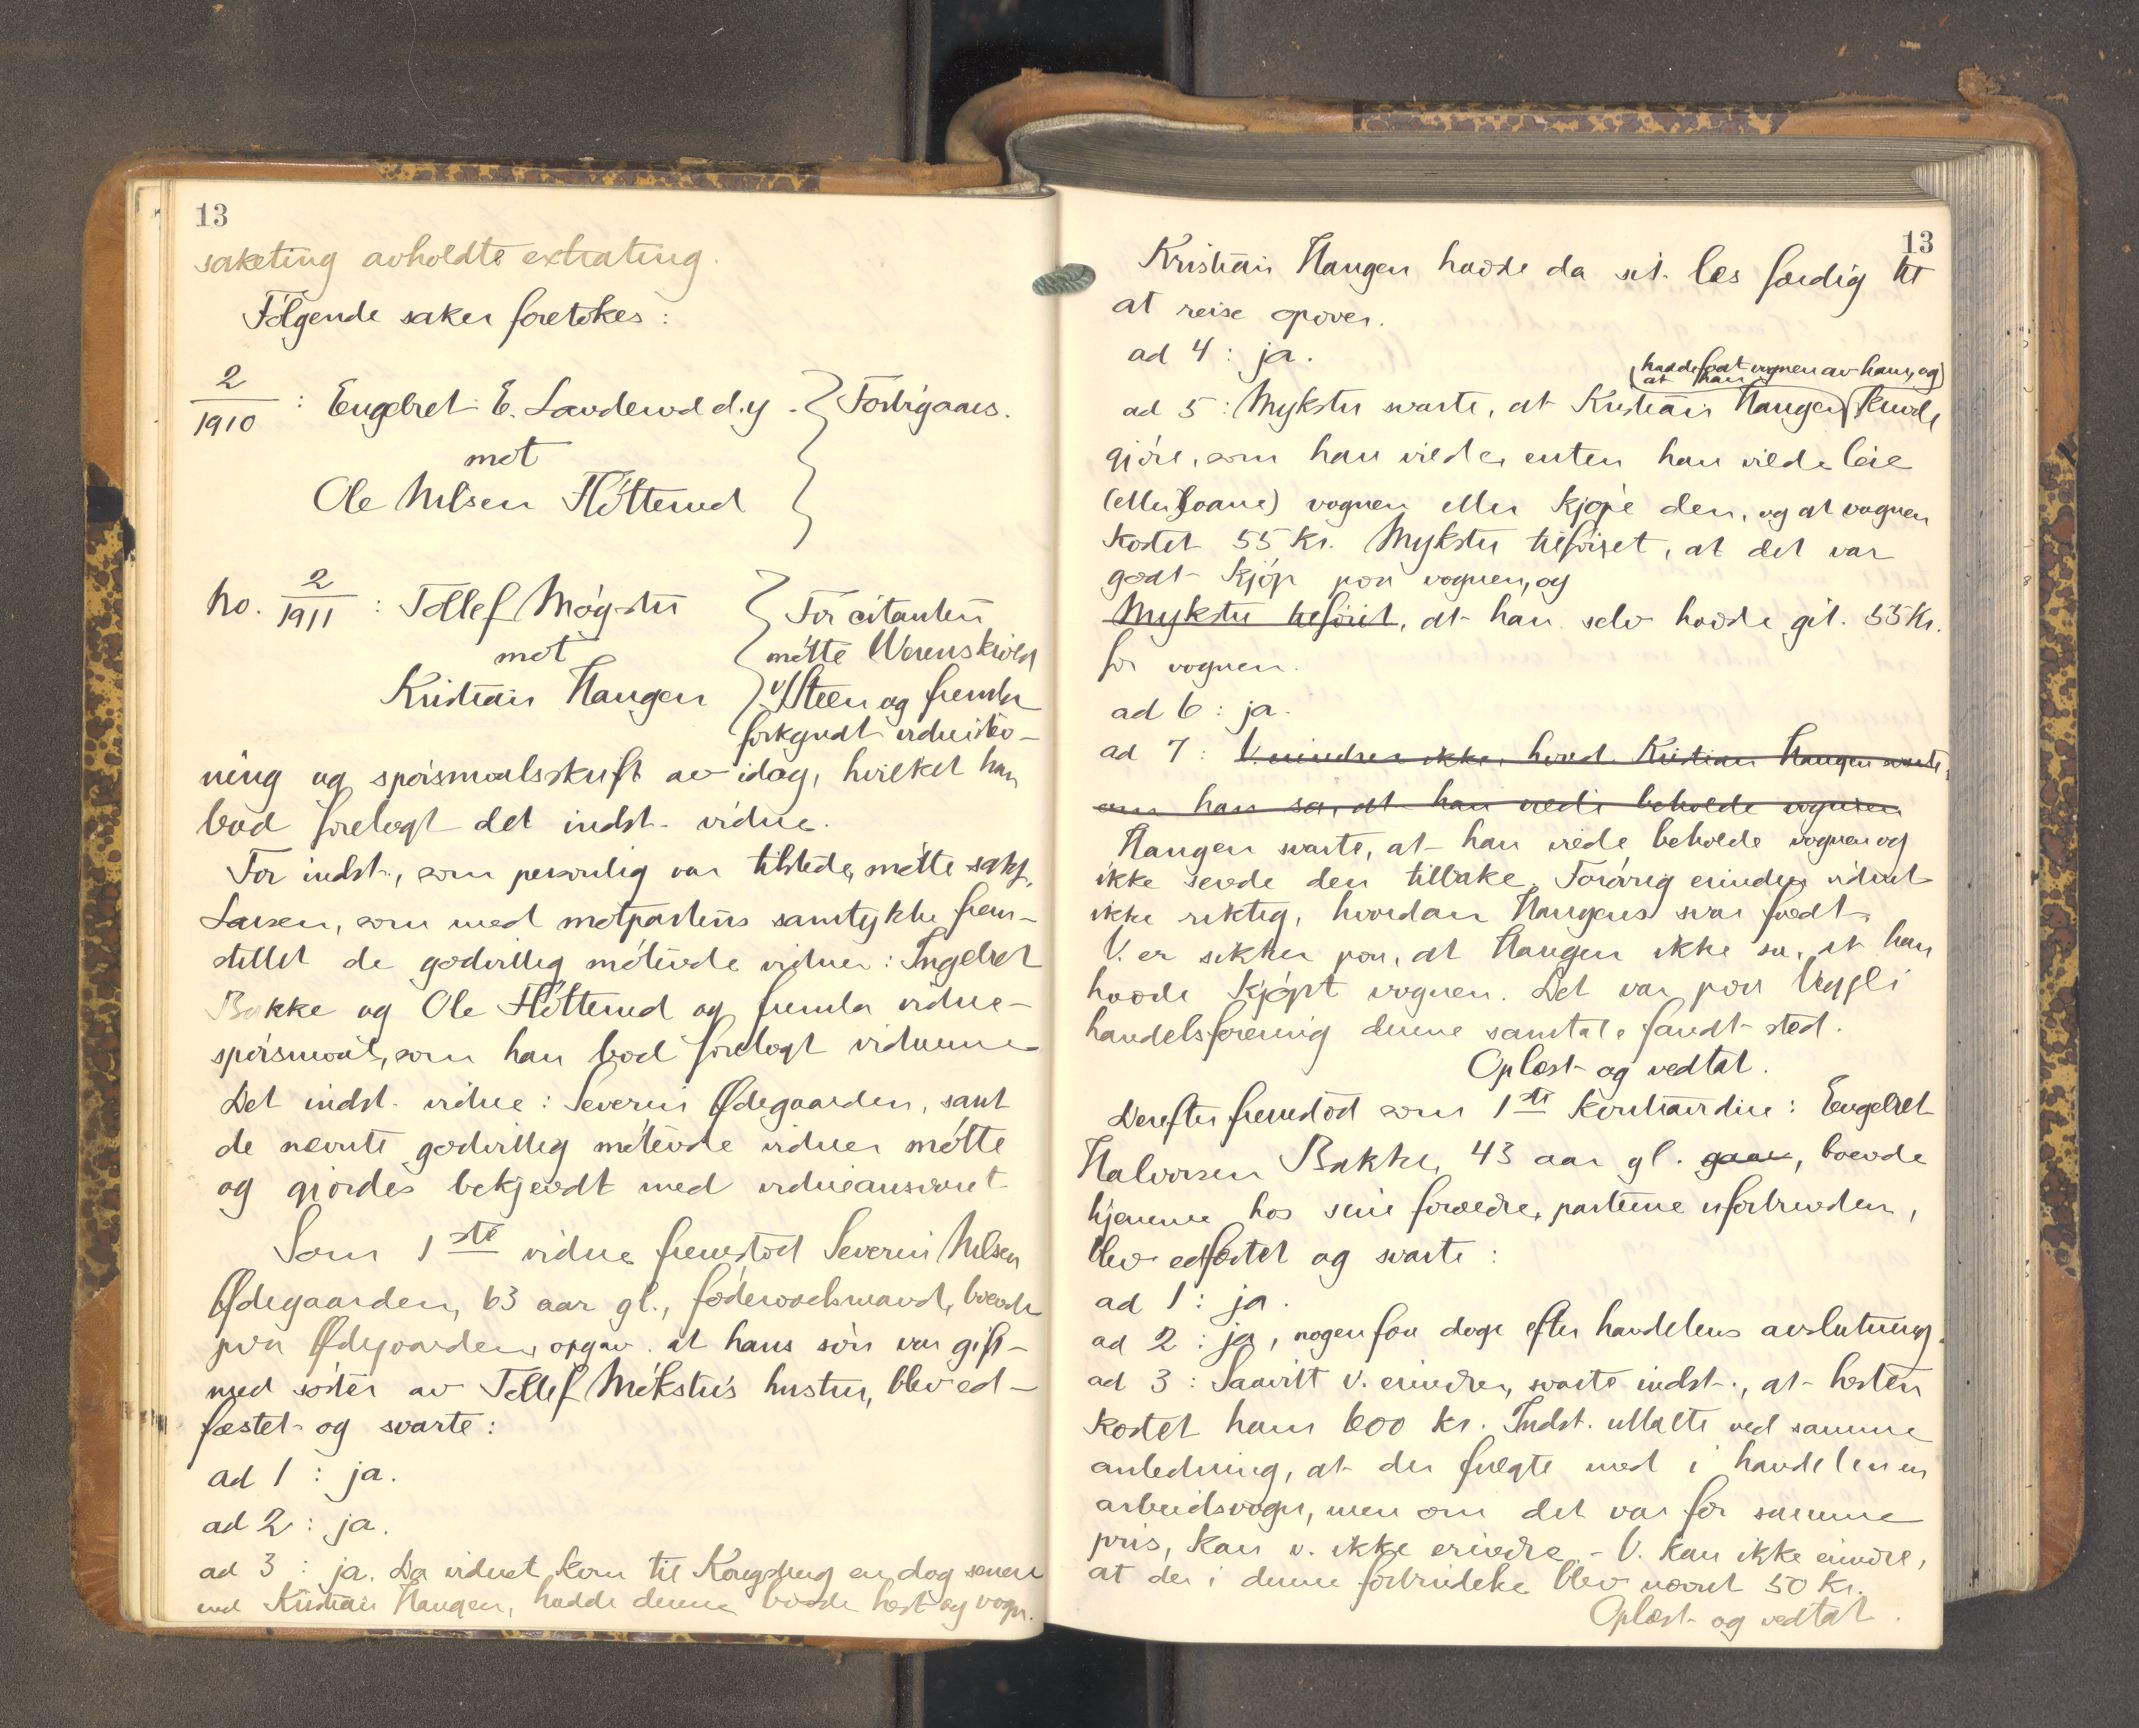 13
saketing avholdte extrating.
Følgende saker foretokes:
2/1910 : Engebret E. Landerud d.y. Forbigaaes.
mot
Ole Nilsen Fløtterud
No. 2/1911 : Tollef Møgstu
mot
Kristian Haugen
For citanten
møtte Werenskiold
v/Steen og fremla
forkyndt vidnestev-
ning og spørsmaalsskrift av idag, hvilket han
bad forelagt det indst. vidne.
For indst., som personlig var tilstede, møtte sakf.
Larsen, som med motpartens samtykke frem-
stillet de godvillig møtende vidner: Ingebret
Bakke og Ole Fløtterud og fremla vidne-
spørsmaal, som han bad forelagt vidnerne
Det indst. vidne: Severin Ødegaarden, samt
de nævnte godvillig møtende vidner møtte
og gjordes bekjendt med vidneansvaret
Som 1ste vidne fremstod Severin Nilsen
Ødegaarden, 63 aar gl., føderaadsmand, boende
paa Ødegaarden, opgav at hans søn var gift
med søster av Tollef Møkstu's hustru, blev ed-
fæstet og svarte:
ad 1 : ja.
ad 2 : ja.
ad 3 : ja. Da vidnet kom til Kongsberg en dag senere
end Kristian Haugen, hadde denne baade hest og vogn.
13
Kristian Haugen havde da sit læs færdig til
at reise opover.
ad 4 : ja.
hadde faat vognen av ham, og
at han
ad 5 : Mykstu svarte, at Kristian Haugen kunde
gjøre, som han vilde, enten han vilde leie
(eller laane) vognen eller kjøpe den, og at vognen
kostet 55 kr. Mykstu tilføiet, at det var
godt kjøp paa vognen, og
Mykstu tilføiet, at han selv havde git 55 Kr.
for vognen.
ad 6 : ja.
ad 7 : V. erindrer ikke, hvad Kristian Haugen svarte,
om han sa, at han vilde beholde vognen
Haugen svarte, at han vilde beholde vognen og
ikke sende den tilbake. Forøvrig erindrer vidnet
ikke riktig, hvordan Haugens svar faldt.
V. er sikker paa, at Haugen ikke sa, at han
havde kjøpt vognen. Det var paa Veggli
handelsforening denne samtale fandt sted.
Oplæst og vedtat.
Derefter fremstod som 1ste kontravidne: Engebret
Halvorsen Bakke, 43 aar gl. gaar, boende
hjemme hos sine forældre, parterne ubeslegtet,
blev edfæstet og svarte:
ad 1 : ja.
ad 2 : ja, nogen faa dage efter handelens avslutning.
ad 3 : Saavitt v. erindrer, svarte indst., at hesten
kostet ham 600 kr. Indst. uttalte ved samme
anledning, at der fulgte med i handelen en
arbeidsvogn, men om det var for samme
pris, kan v. ikke erindre. - V. kan ikke erindre,
at der i denne forbindelse blev nævnt 50 Kr.
Oplæst og vedtat.